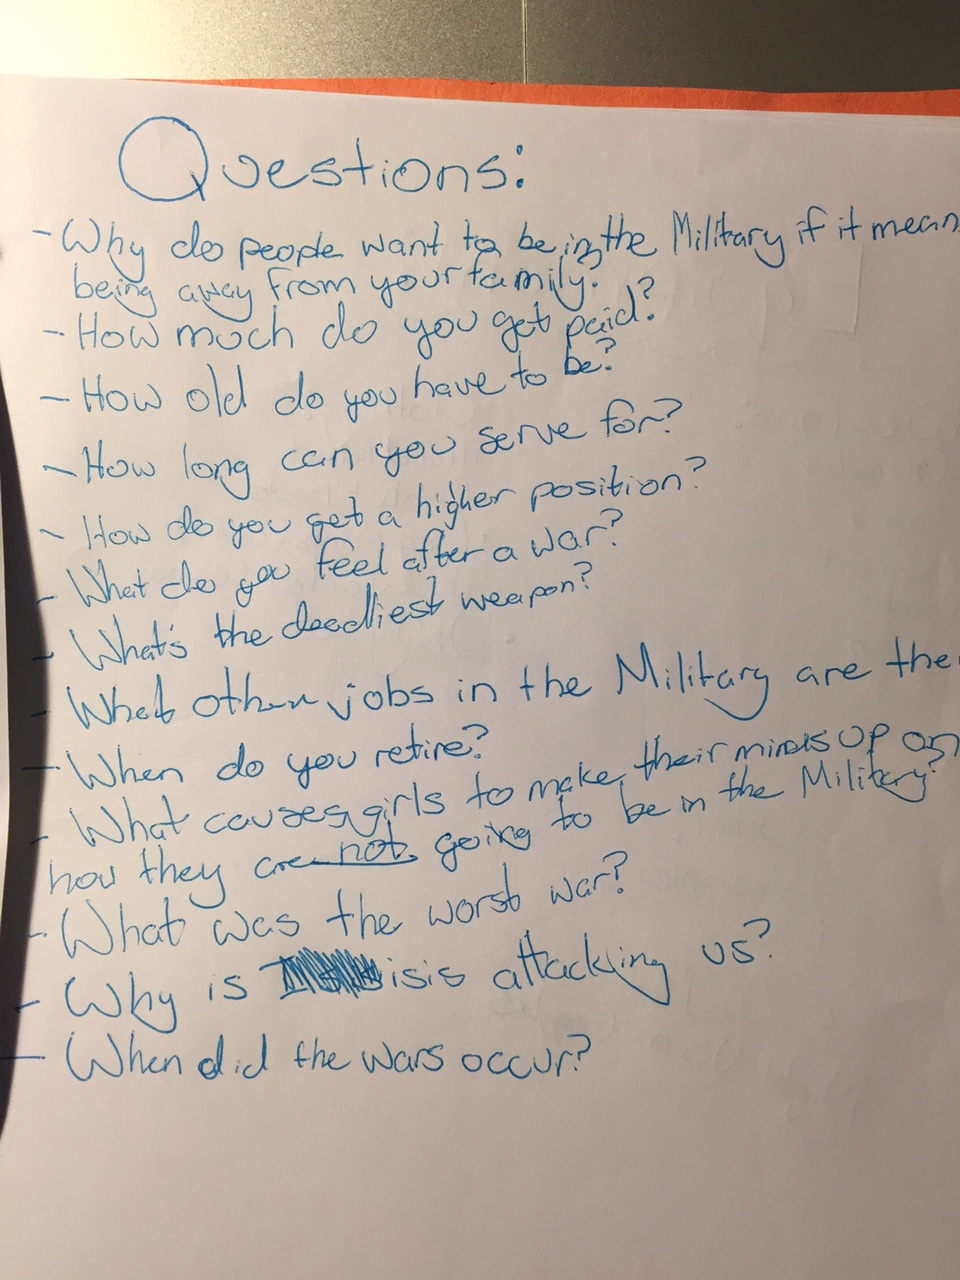 Questions:
- Why do people want to be in the Military if it mean
being away from your family?
- How much do you get paid?
- How old do you have to be?
- How long can you serve for?
- How do you get a higher position?
- What do you feel after a war?
- What's the deadliest weapon?
- What other jobs in the Military are the
- When do you retire?
- What causes girls to make their minds up on
how they are not going to be in the Military?
- What was the worst war?
- Why is isis attacking us?
- When did the wars occur?